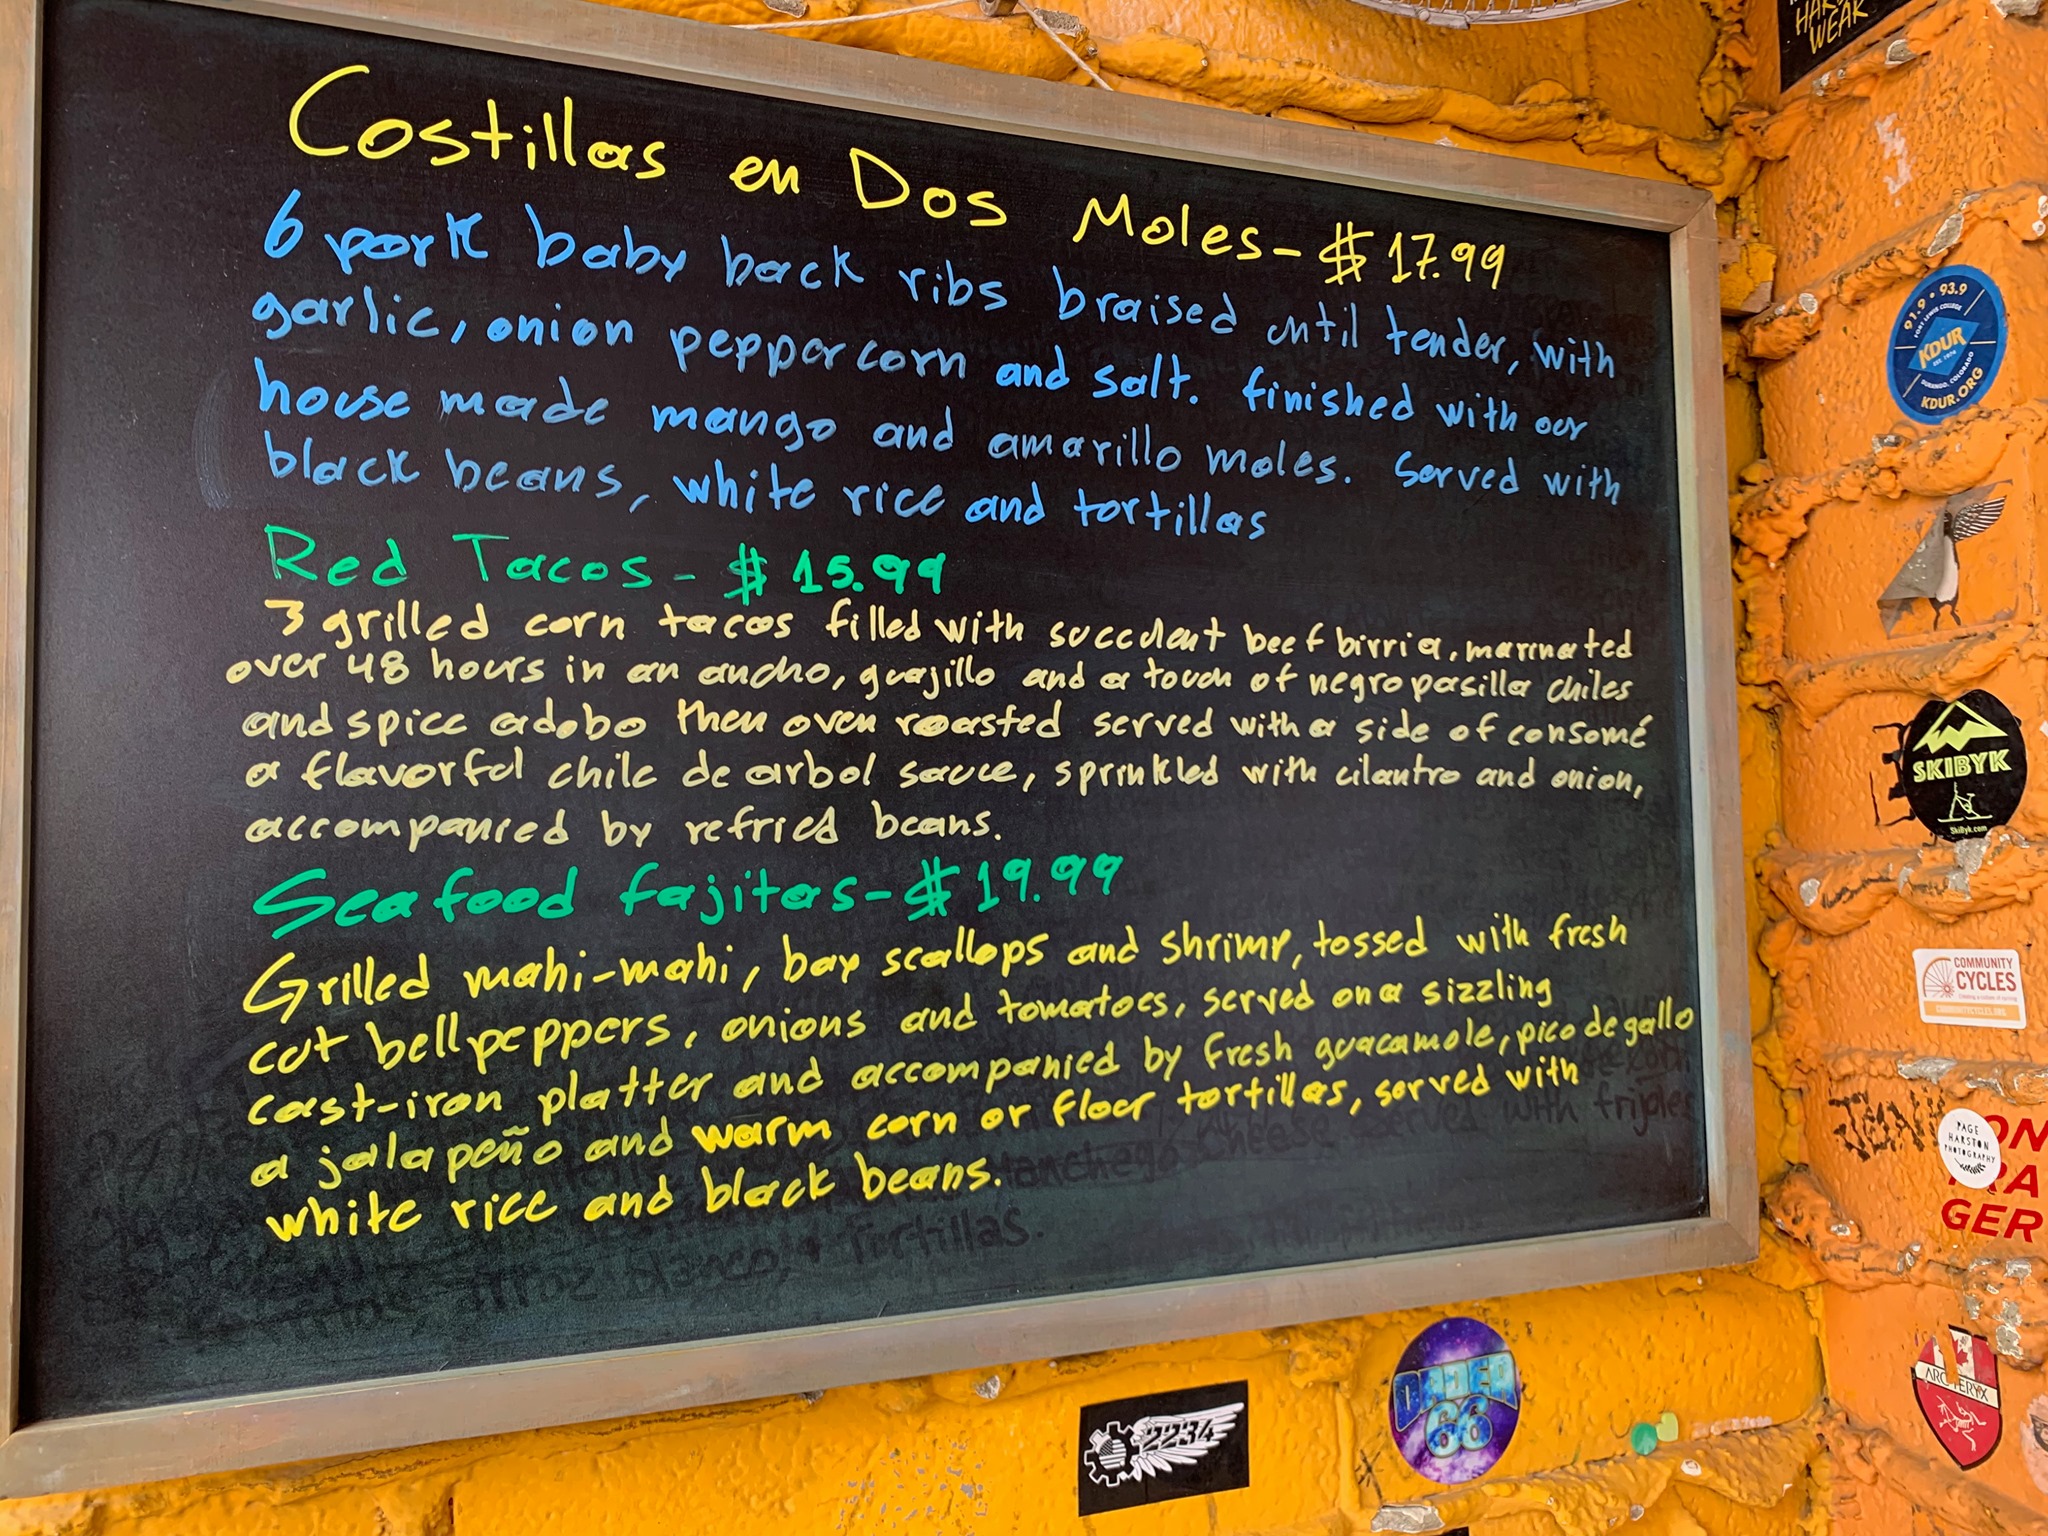 Costillas en Dos Moles - $17.99
6 pork baby back ribs braised until tender, with
garlic, onion peppercorn and salt. finished with our
house made mango and amarillo moles. Served with
black beans, white rice and tortillas
Red Tacos - $15.99
3 grilled corn tacos filled with succulent beef birria, marinated
over 48 hours in an ancho, guajillo and a touch of negro pasilla chiles
and spice adobo then oven roasted served with a side of consomé
a flavorful chile de arbol sauce, sprinkled with cilantro and onion,
accompanied by refried beans.
Seafood fajitas - $19.99
Grilled mahi-mahi, bay scallops and shrimp, tossed with fresh
cut bell peppers, onions and tomatoes, served on a sizzling
cast-iron platter and accompanied by fresh guacamole, pico de gallo
a jalapeño and warm corn or flour tortillas, served with
white rice and black beans.
Manchego Cheese served with frijoles
arroz blanco, + Tortillas.
WEAK
91.9 • 93.9
FORT LEWIS COLLEGE
KDUR
EST. 1974
DURANGO, COLORADO
KDUR.ORG
SKIBYK
SkiByk.com
COMMUNITY
CYCLES
COMMUNITYCYCLES.ORG
PAGE
HARSTON
PHOTOGRAPHY
ON
RA
GER
ARC'TERYX
2234
66